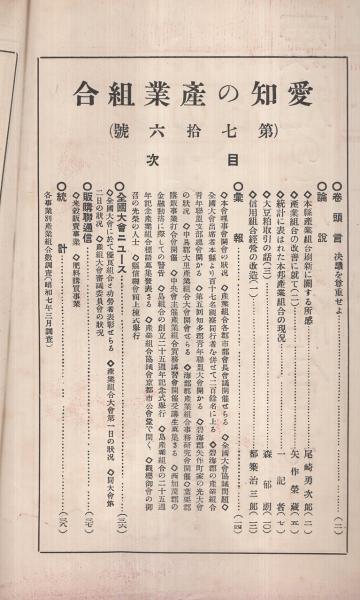 愛知の產業組合
(第七拾六號)
目次
●卷頭言 決議を尊重せよ……(一)
●論說
◇本縣產業組合刷新に關する所感……尾崎勇次郎(二)
◇產業組合の改善に就て(二)……矢作榮藏(五)
◇統計に表はれた本邦產業組合の現況……一記者(七)
◇大豆粕の取引の話(三)……森郁朗(一〇)
◇信用組合經營の改善(一)……都築治三郎(一二)
●彙報……(一四)
◇本會理事會開會の狀況 ◇產業組合各郡市部會長會議開催せらる ◇全國大會協議問題
全國大會出席者本縣より百十七名視察同行者を併せて二百餘名に上る ◇碧海郡の產業組合
靑年聯盟支部總會開かる ◇第五回知多郡靑年聯盟大會開かる ◇碧海郡矢作町家の光大會
の狀況 ◇中島郡大里產業組合大會開催せらる ◇海部郡產業組合事務硏究會開催 ◇葉栗郡
購販事業打合會開催 ◇中央會主催產業組合實務講習會開催受講生募集さる ◇西加茂郡の
金融動搖に際しての警告 ◇島組合の創立二十五週年記念式擧行 ◇島產業組合の二十五週
年記念產業組合標語募集發表さる ◇產業組合協議會京都市公會堂で開く ◇觀櫻御會の御
召の光榮の人士 ◇縣信聯會館上棟式擧行
●全國大會ニュース……(二六)
◇全國大會に於て優良組合と功勞者表彰せらる ◇產業組合大會第一日の狀況 ◇同大會第
二日の狀況 ◇產組大會審議委員會の狀況
●販購聯通信……(三七)
◇米穀販賣事業 ◇肥料購買事業
●統計……(三八)
各事業別產業組合數調查(昭和七年三月調查)